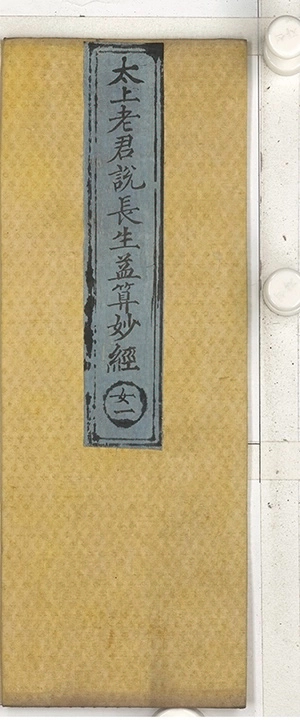 太上老君說長生益算妙經
女一